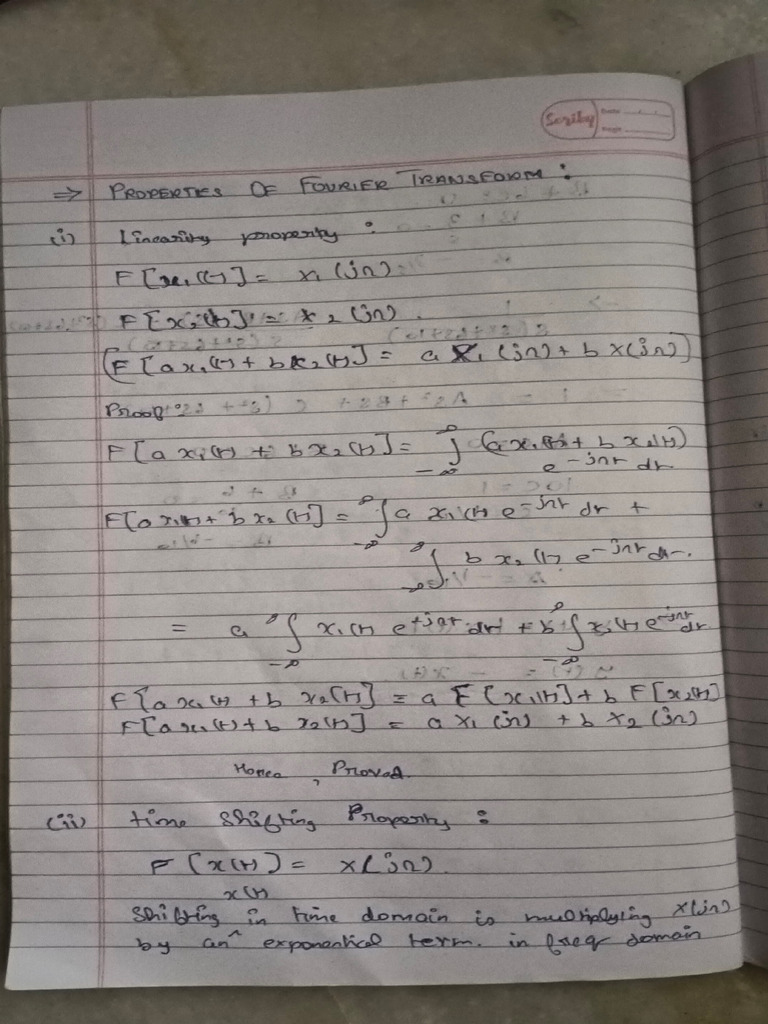 Scriby
⇒ PROPERTIES OF FOURIER TRANSFORM :
(i) Linearity property :
F[x₁(t)] = X₁(jΩ)
F[x₂(t)] = X₂(jΩ).
[F[ax₁(t) + bx₂(t)] = a X₁(jΩ) + b X(jΩ)]
Proof
F[a x₁(t) + b x₂(t)] = ∫_{-∞}^{∞} (a x₁(t) + b x₂(t))
e^{-jΩt} dt
F[a x₁(t) + b x₂(t)] = ∫_{-∞}^{∞} a x₁(t) e^{-jΩt} dt +
∫_{-∞}^{∞} b x₂(t) e^{-jΩt} dt.
= a ∫_{-∞}^{∞} x₁(t) e^{+jΩt} dt + b ∫_{-∞}^{∞} x₂(t) e^{-jΩt} dt
F[a x₁(t) + b x₂(t)] = a F[x₁(t)] + b F[x₂(t)]
F[a x₁(t) + b x₂(t)] = a X₁(jΩ) + b X₂(jΩ)
Hence, Proved.
(ii) time Shifting Property :
F[x(t)] = X(jΩ)
x(t)
Shifting in time domain is multiplying X(jΩ)
by an exponentical term. in freq domain